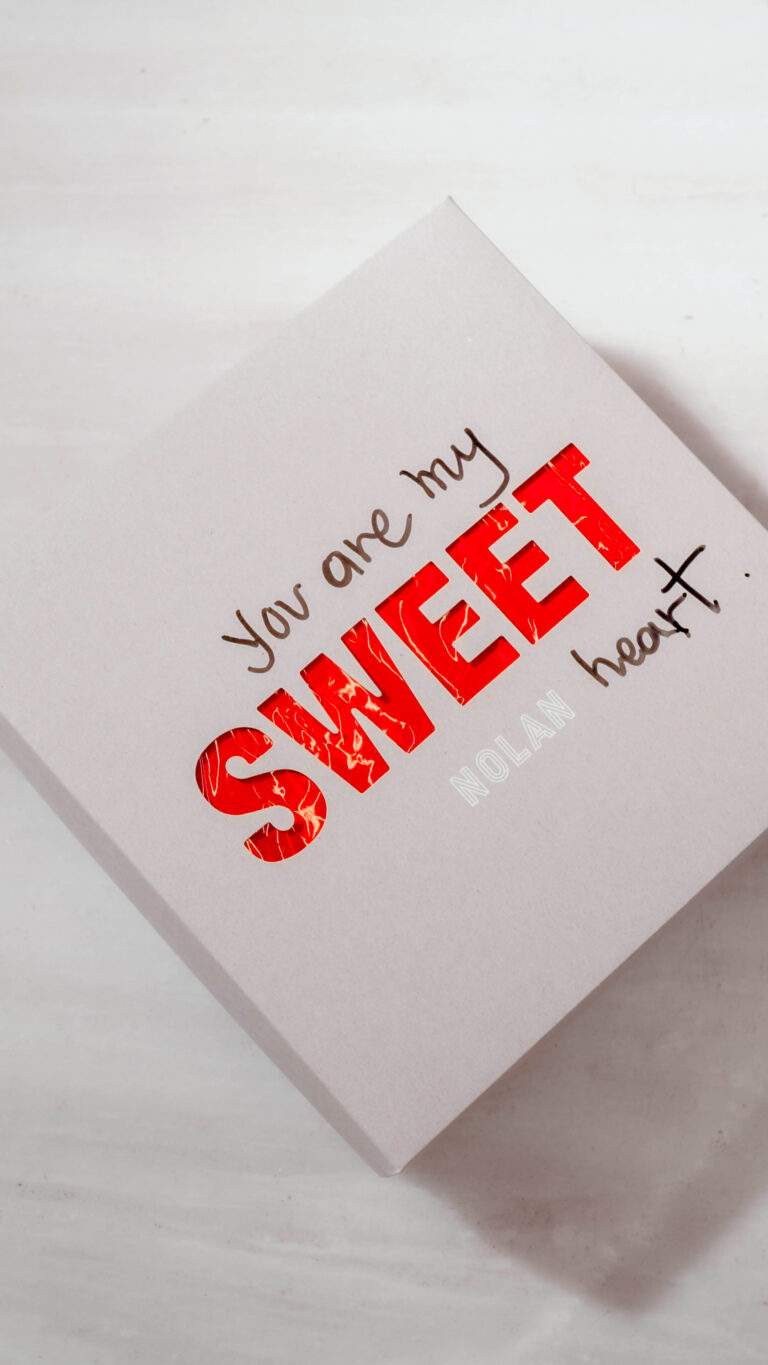 You are my
SWEET
heart.
NOLAN